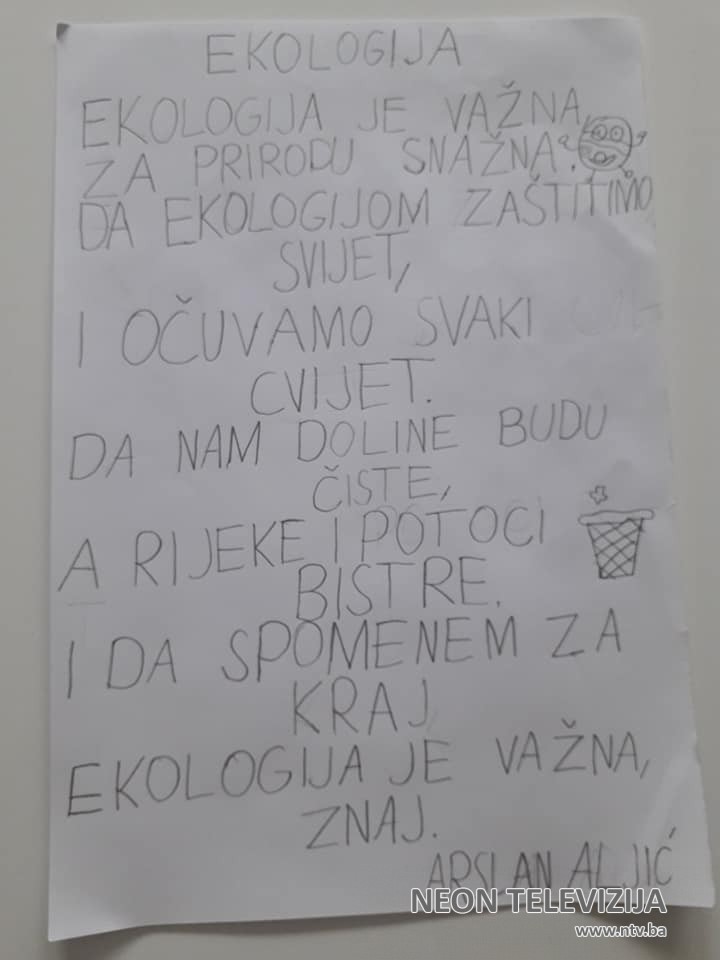 EKOLOGIJA
EKOLOGIJA JE VAŽNA,
ZA PRIRODU SNAŽNA.
DA EKOLOGIJOM ZAŠTITIMO
SVIJET,
I OČUVAMO SVAKI
CVIJET.
DA NAM DOLINE BUDU
ČISTE,
A RIJEKE I POTOCI
BISTRE.
I DA SPOMENEM ZA
KRAJ
EKOLOGIJA JE VAŽNA,
ZNAJ.
ARSLAN ALJIĆ
NEON TELEVIZIJA
www.ntv.ba